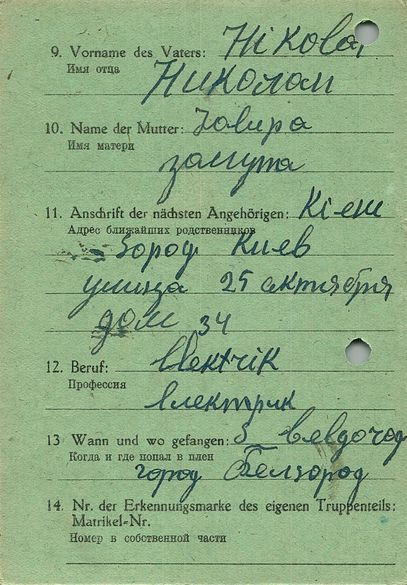 9. Vorname des Vaters: Нікола
Имя отца
Николай
10. Name der Mutter:
Имя матери
11. Anschrift der nächsten Angehörigen: Кіеш
Адрес ближайших родственников
город Киев
улица 25 октября
дом 34
12. Beruf: Elektrik
Профессия
Електрик
13 Wann und wo gefangen:
Когда и где попал в плен
город Белгород
14. Nr. der Erkennungsmarke des eigenen Truppenteils:
Matrikel-Nr.
Номер в собственной части